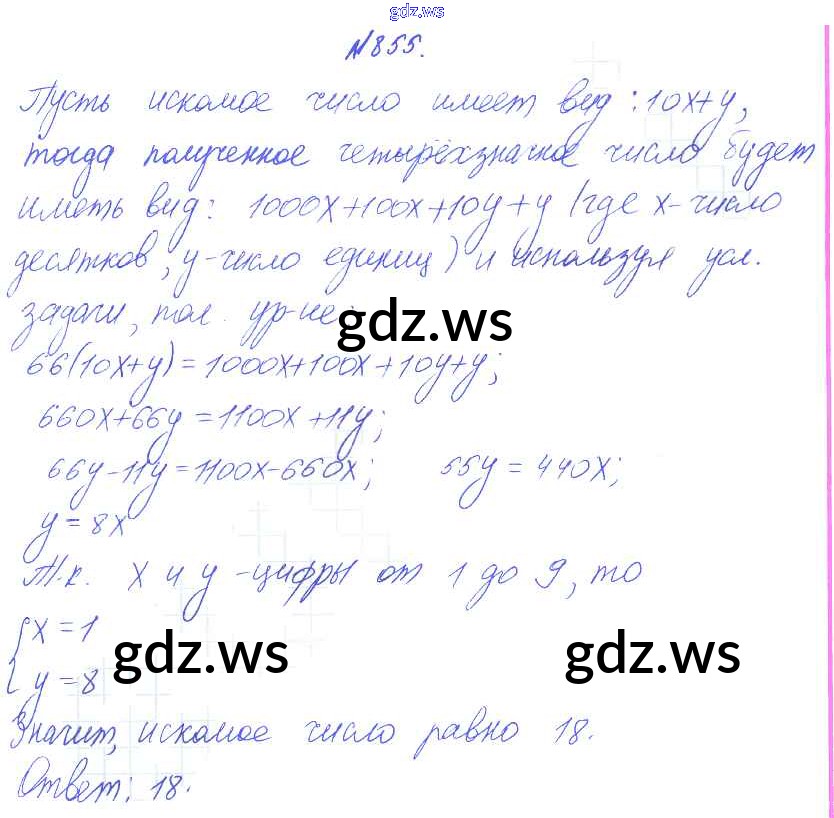 gdz.ws
№855.
Пусть искомое число имеет вид: 10x+y,
тогда полученное четырёхзначное число будет
иметь вид: 1000x+100x+10y+y (где x-число
десятков, y-число единиц) и используя усл.
задачи, пол. ур-ие:
gdz.ws
66(10x+y)=1000x+100x+10y+y;
660x+66y=1100x+11y;
66y-11y=1100x-660x; 55y=440x;
y=8x
Т.к. x и y -цифры от 1 до 9, то
{x=1
y=8
gdz.ws gdz.ws
Значит, искомое число равно 18.
Ответ: 18.